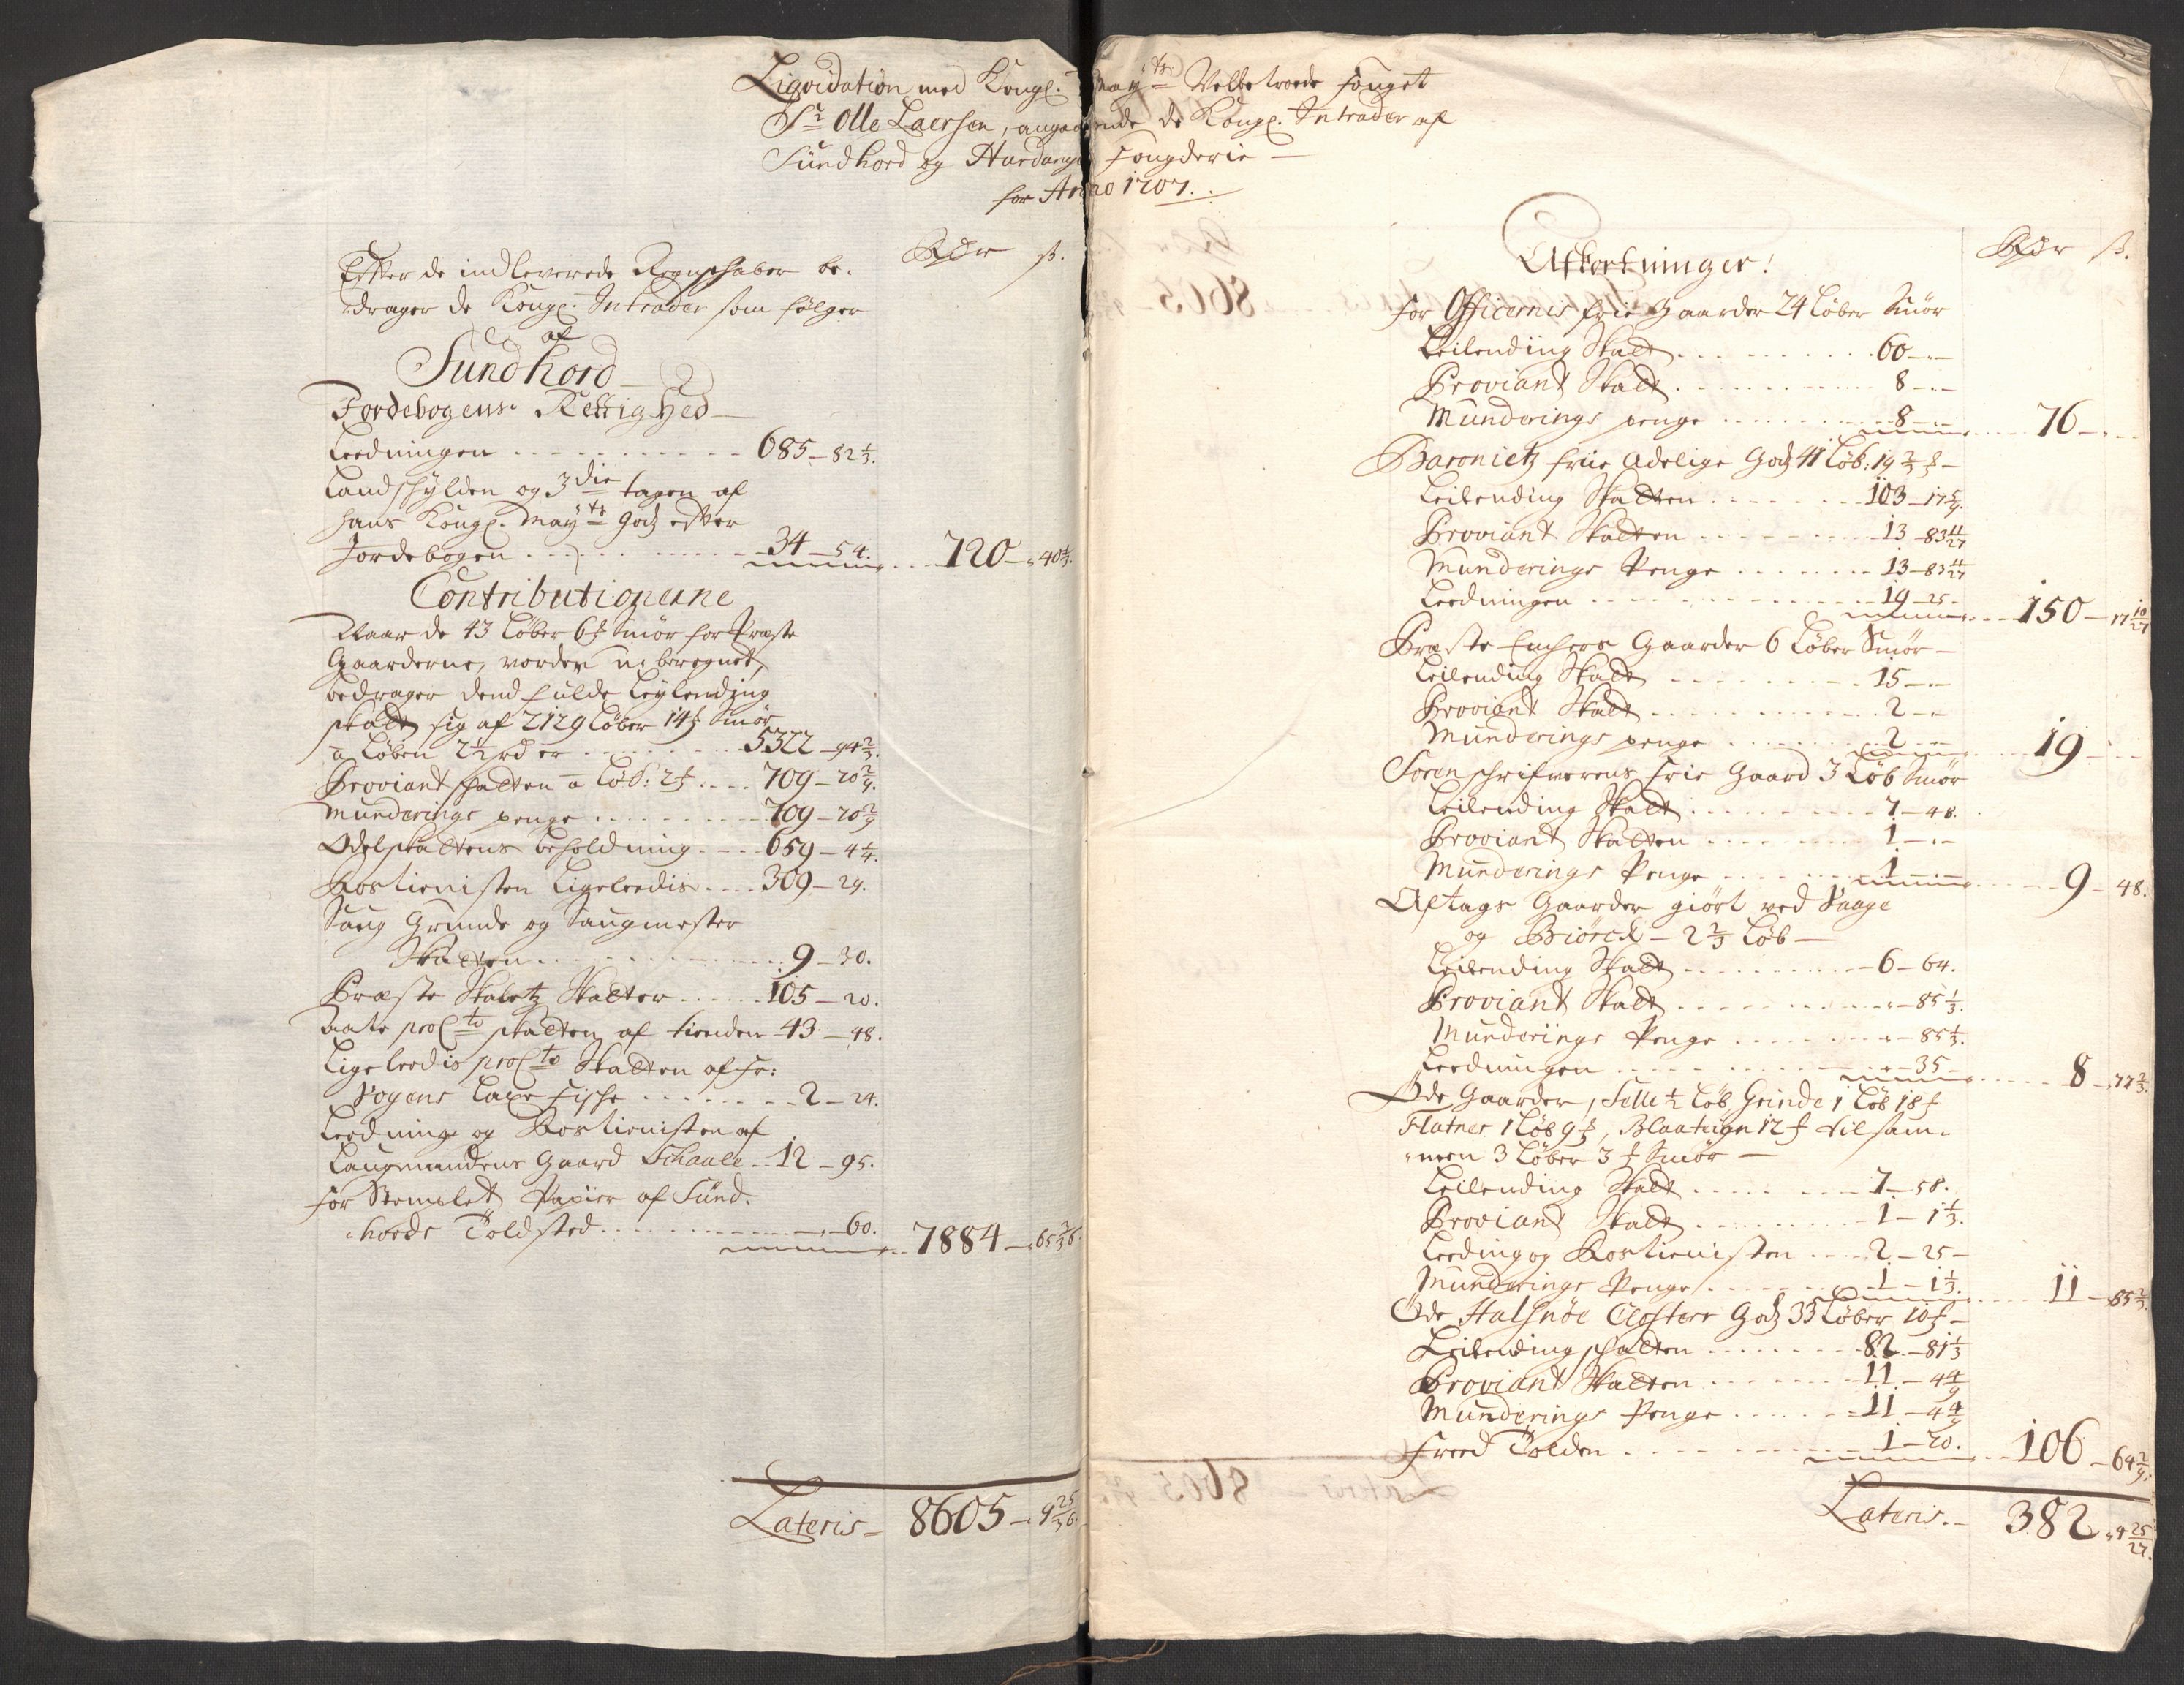 Liqvidation med Kongl. May.ts Velbetroede fouget
Sr. Olle Laersen, angaaende de Kongl. Intrader af
Sundhord og Hardanger fougderie
for Anno 1707.
Rdr ß.
Efter de indleverede Regnschaber be-
drager de Kongl. Intrader som følger
af
Sundhord
Jordebogens Rettighed
Leedningen 685 - 82 1/3.
Landschylden og 3die tagen af
hans Kongl. May.ts Godz efter
Jordebogen 34 - 54. 720 - 40 1/3.
Contributionerne
Naar de 43 Løber 6 Smør for Præste
Gaarderne, vorder beregnet,
bedrager dend fulde Leylending
skatt sig af 2129 Løber 14 Smør
a Løben 2 1/2 rd er 5322 - 94 2/3.
Proviant schatten a Løb: 2 709 - 20 2/9.
Munderings penge 709 - 20 2/9
Odelskattens beholdning 659 - 4 1/4.
Rostienisten Ligeledis 309 - 29.
Saug Grunde og Saugmester
Skatten 9 - 30.
Præste Skabetz Skatter 105 - 20.
pro Cto skatten af tienden 43 - 48.
Ligeledis pro Cto Skatten af
Vogens Laxe fische 2 - 24.
Leedning og Rostienisten af
Laugmandens Gaard Schaale 12 - 95.
for Stemplet Papiir af Sund-
hords Toldsted 60. 7884 - 65
Lateris 8605 - 9 25/36.
Rdr ß.
Afkortninger!
for Officernis frie Gaarder 24 Løber Smør
Leilending Skatt 60 - -
Proviant Skatt 8 - -
Munderings penge 8 - - 76 - -
Baronietz frie Adelige Godz 41 Løb: 19 2/3
Leilending Skatten 103 - 17 5/9.
Proviant Skatten 13 - 83 11/27
Munderings Penge 13 - 83 11/27
Leedningen 19 - 25 - 150 - 17 10/27
Præste Enchers Gaarder 6 Løber Smør
Leilending Skatt 15 - -
Proviant Skatt 2 - -
Munderings penge 2 - - 19 - -
Soren schrifverens frie Gaard 3 Løb Smør
Leilending Skatt 7 - 48.
Proviant Skatten 1 - -
Munderings Penge 1 - - 9 - 48.
Aftags Gaarder giört ved Vaage
og Biörck - 2 2/3 Løb
Leilending Skatt 6 - 64.
Proviant Skatt - 85 1/3.
Munderings Penge - 85 1/3.
Leedningen - 35 - 8 - 77 2/3.
Øde Gaarder, Selle 1/2 Løb Grinde 1 Løb 18
Flatnes 1 Løb 9, Blaatugn 12 til sam-
men 3 Løber 3 Smør
Leilending Skatt 7 - 58.
Proviant Skatt 1 - 1 1/3.
Leeding og Rostienisten 2 - 25 -
Munderings Penge 1 - 1 1/3. 11 - 85 2/3.
Øde Halsnöe Closters Godz 33 Løber 10
Leilending schatten 82 - 81 1/3
Proviant Skatten 11 - 4 4/9
Munderings Penge 11 - 4 4/9
Freed Tolden 1 - 70. 106 - 64 2/9.
Lateris 382 - 4 25/27.